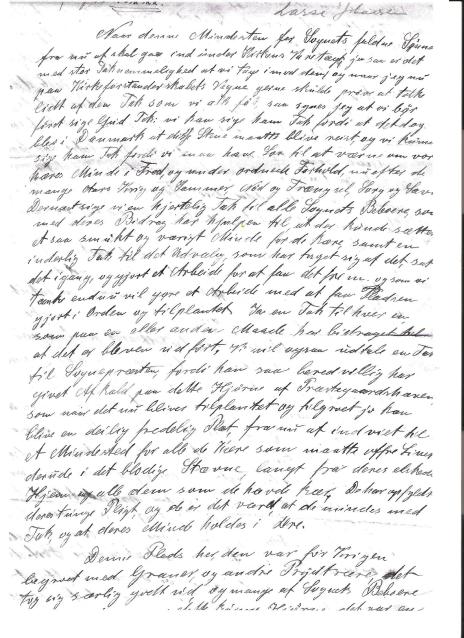 Lasse
Naar denne Mindesten for Sognets faldne Sønner
fra nu af skal gaa ind under Kirkens Værtægt, ja saa er det
med stor Taknemmelighed at vi tage imod den, og naar jeg nu
paa Kirkeforstanderskabets Vegne gerne skulde prøve at tolke
lidt af den Tak som vi alle så synes jeg at vi bør
først sige Gud Tak: vi kan sige ham Tak fordi at det dog
blev i Danmark at disse Stene maatte blive rejst og vi kunne
sige ham Tak fordi vi maa have Lov til at værne om vor
kæres Minde i Fred, og under ordnede Forhold, nu efter de
mange Aars Krig og Jammer, Nød og Trængsel, Sorg og Savn
Dernæst sige vi en hjertelig Tak til alle Sognets Beboere som
med deres Bidrag har hjulpen til at der kunde sættes
et saa smukt og værdigt Minde for de kære, samt en
inderlig Tak til det Udvalg som har taget sig af det, sat
det i gang, og gjort et Arbeide for at faa det frem, og som vi
tænke endnu vil gøre et Arbeide med at faa Pladsen
gjort i Orden og tilplantet Ja en Tak til hver en
som paa en eller anden Maade har bidraget til
at det er bleven udført, Vi vil ogsaa udtale en Tak
til Sognepræsten fordi han saa beredvillig har
givet Afkald paa dette Hjørne af Præstegaardshaven
som naar det nu blives tilplantet og tilgroet jo kan
blive en deilig fredelig Plet fra nu af indviet til
et Mindested for alle de kære som maatte ofre Livet
derude i det blodige Stævne, langt fra deres elskede
Hjem og alle dem som de havde kær, De har opfyldt
deres tunge Pligt, og de er det værd at de mindes med
Tak, og at deres Minde holdes i Ære.
Denne Plads her, den var før Krigen
begroet med Graner, og andre Prydtræer, det
tog sig særlig godt ud og mange af Sognets Beboere
det var en